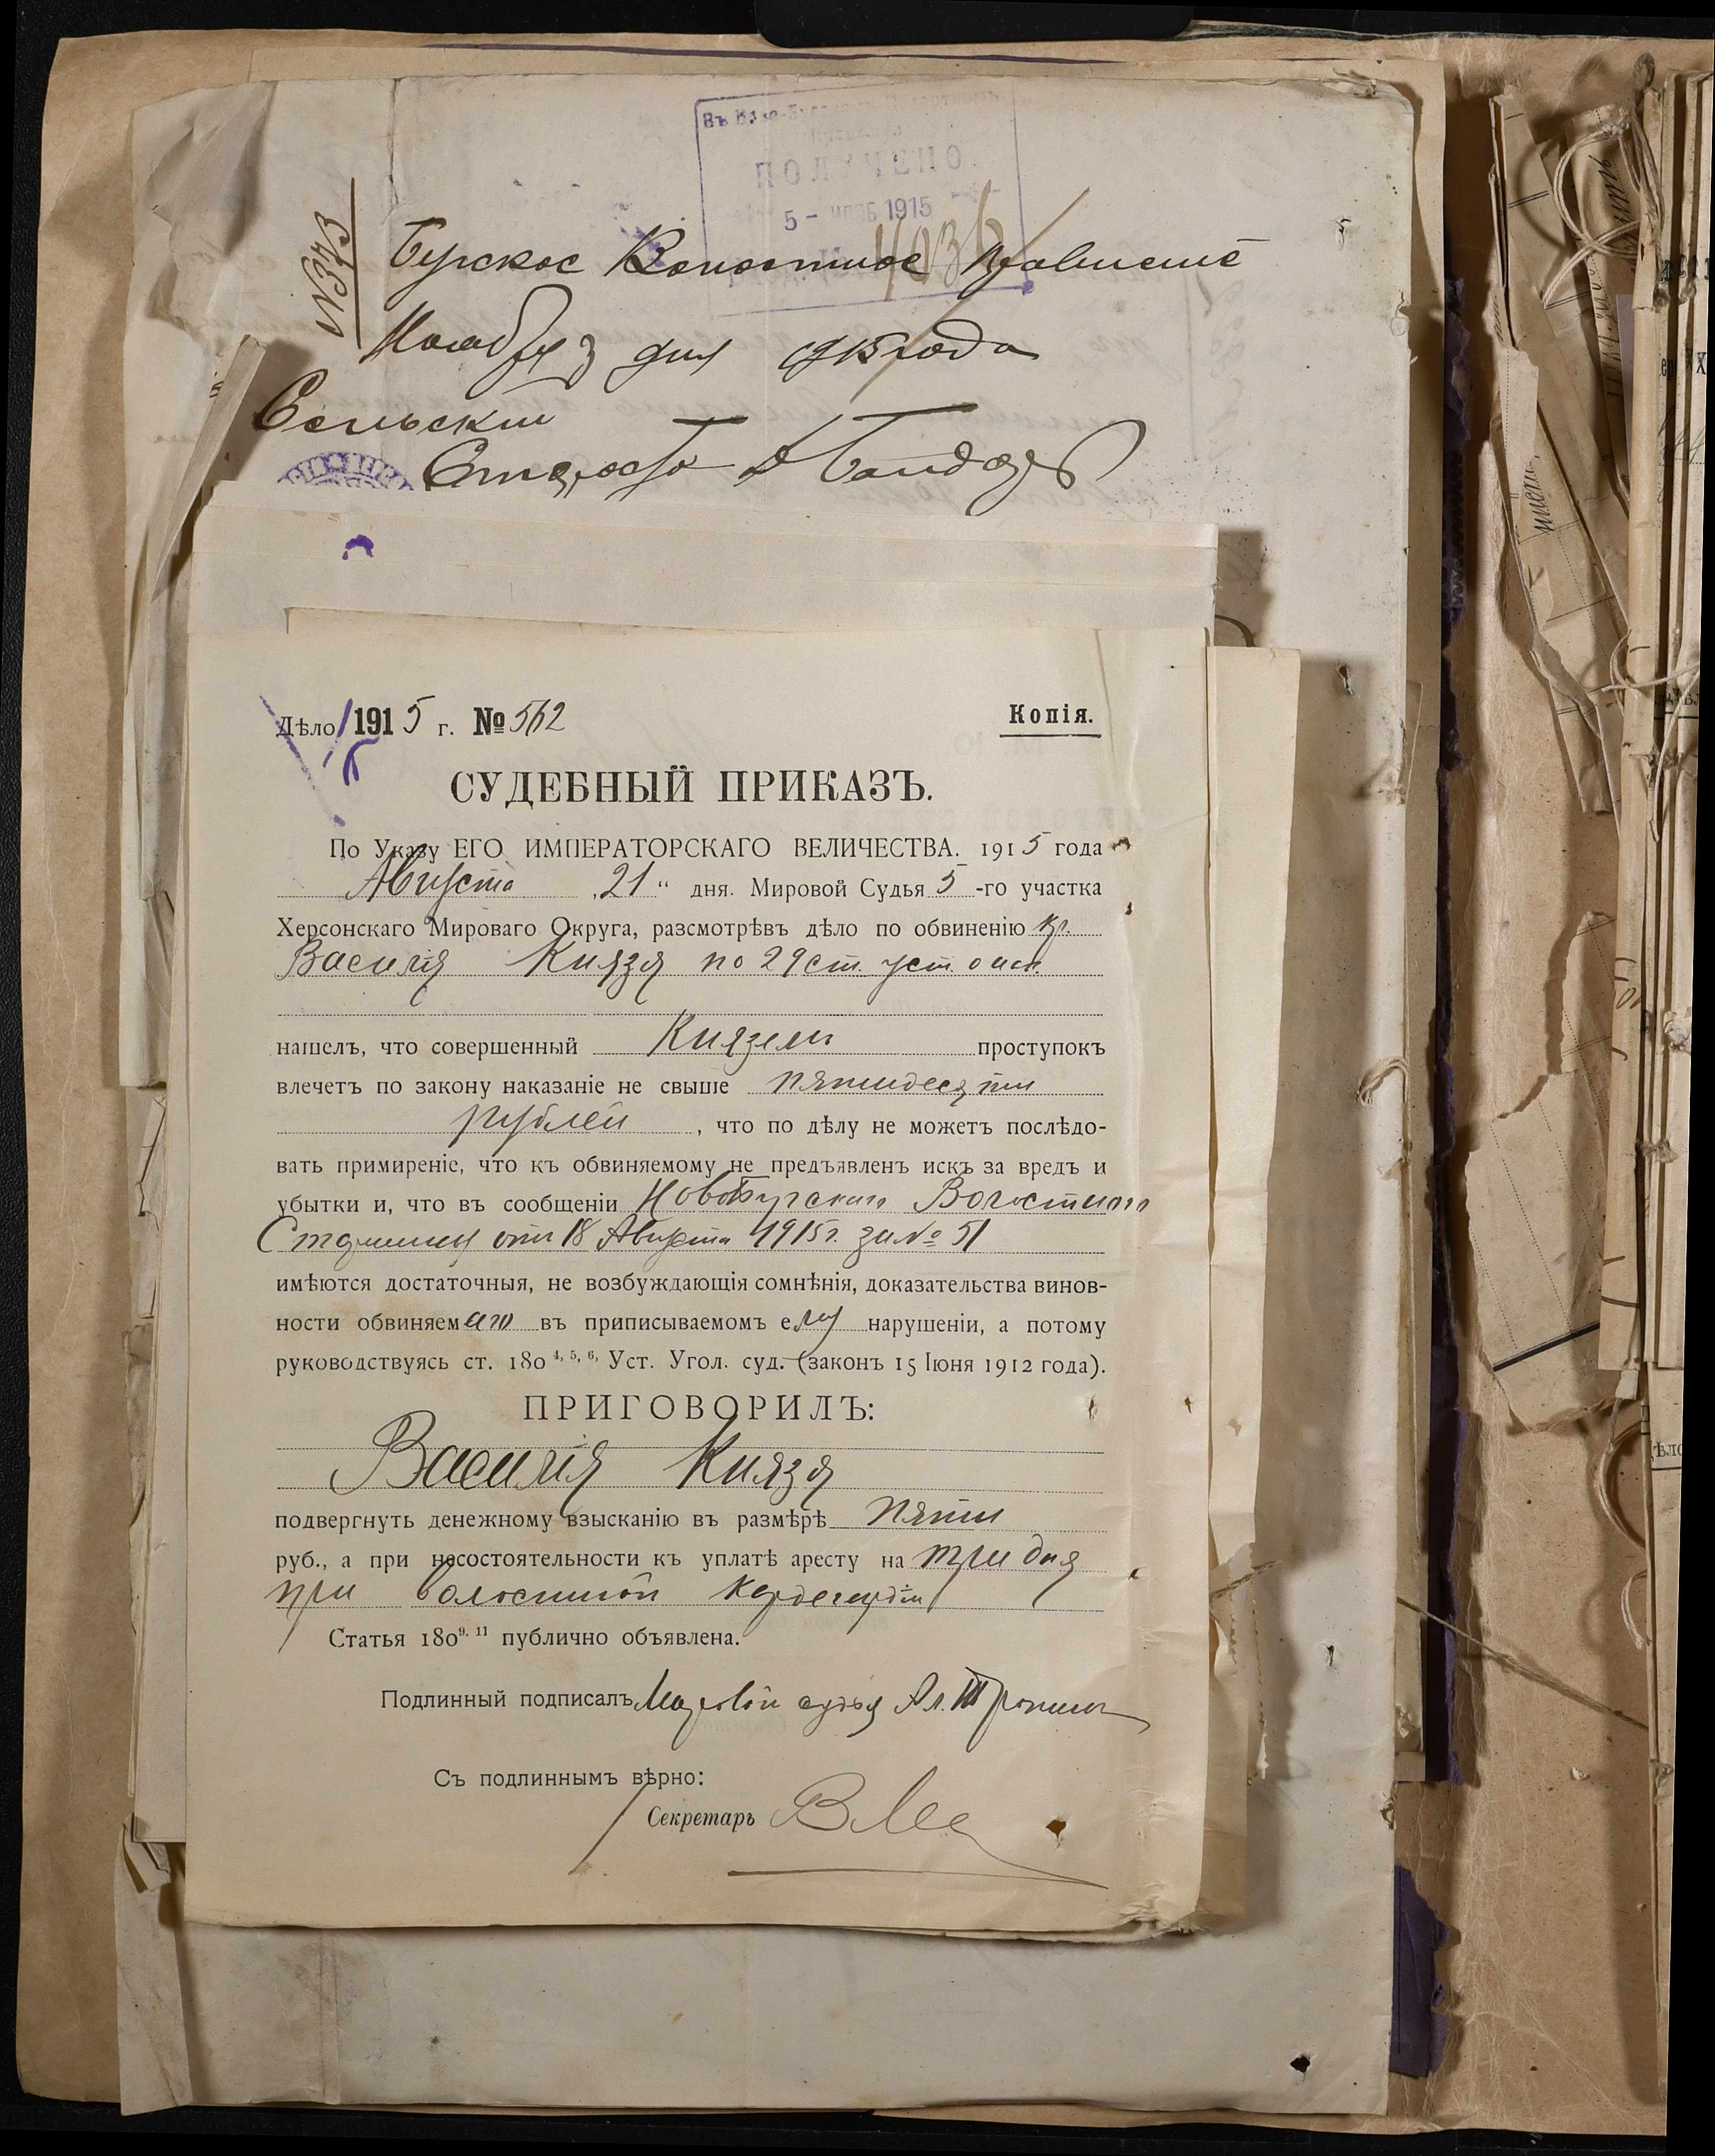 ПОЛУЧЕНО
5 - НОЯБ 1915
№373
Бургское Волостное Правление
Ноября 3 дня 1915 года
Сельский
Староста
Дѣло 1915 г. № 562
Копія.
СУДЕБНЫЙ ПРИКАЗЪ.
По Указу ЕГО ИМПЕРАТОРСКАГО ВЕЛИЧЕСТВА. 1915 года
Августа 21 " дня. Мировой Судья 5 -го участка
Херсонскаго Мироваго Округа, разсмотрѣвъ дѣло по обвиненію кр.
Василія Князя по 29 ст. уст. о нак.
нашелъ, что совершенный Княземъ проступокъ
влечетъ по закону наказаніе не свыше пятидесяти
рублей , что по дѣлу не можетъ послѣдо-
вать примиреніе, что къ обвиняемому не предъявленъ искъ за вредъ и
убытки и, что въ сообщеніи Новобургскаго Волостного
Старшины отъ 18 Августа 1915 г. за № 51
имѣются достаточныя, не возбуждающія сомнѣнія, доказательства винов-
ности обвиняемаго въ приписываемомъ ему нарушеніи, а потому
руководствуясь ст. 180 4, 5, 6, Уст. Угол. суд. (законъ 15 Іюня 1912 года).
ПРИГОВОРИЛЪ:
Василія Князя
подвергнуть денежному взысканію въ размѣрѣ пяти
руб., а при несостоятельности къ уплатѣ аресту на три дня
при волостной кордегардіи
Статья 180 9. 11 публично объявлена.
Подлинный подписалъ Мировой судья Ал.
Съ подлиннымъ вѣрно:
Секретарь